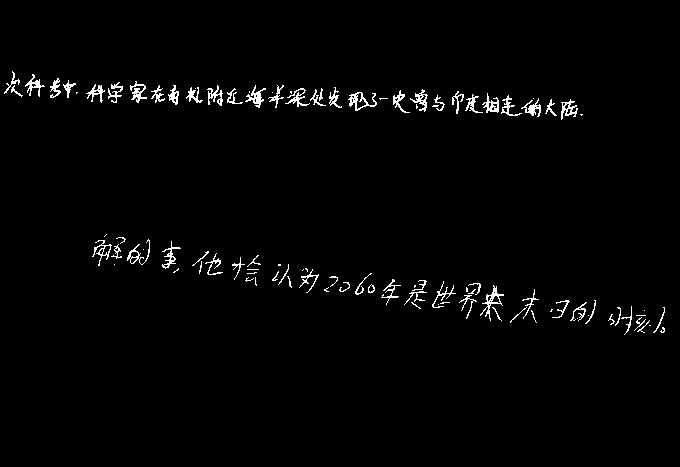 次科考中.科学家在南极附近海水深处发现了一史曾与印度相连的大陆.
解的事,他才会认为2060年是世界末日的时刻。